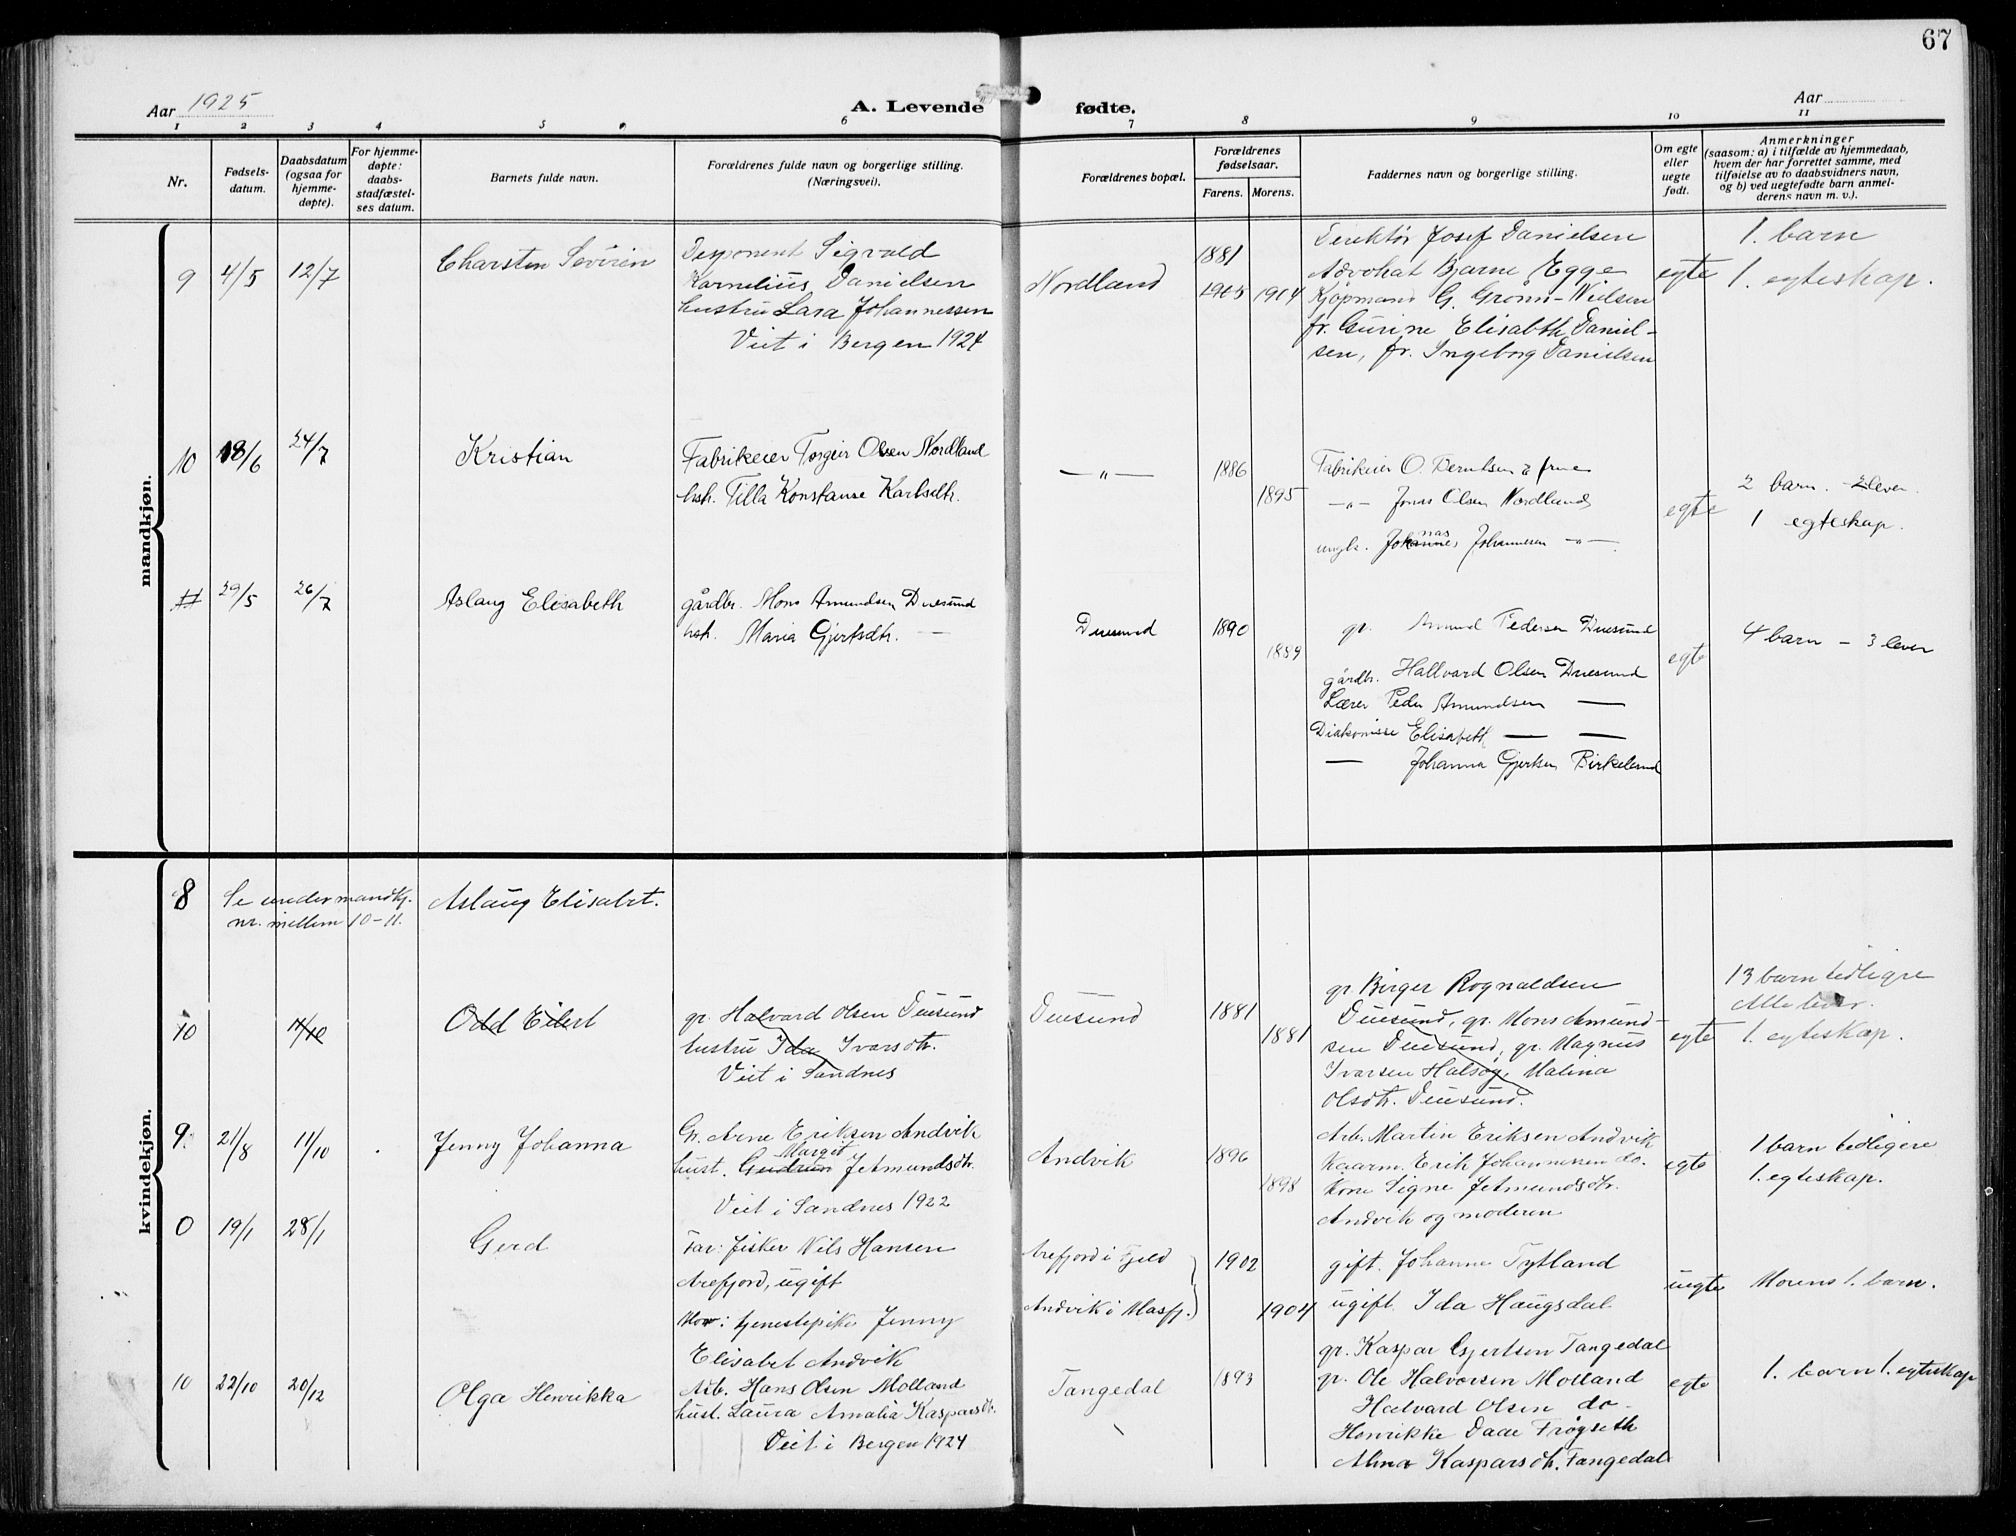 67
Aar 1925
A. Levende fødte.
Aar
1 2 3 4 5 6 7 8 9 10 11
Nr.
Fødsels-
datum.
Daabsdatum
(ogsaa for
hjemme-
døpte).
For hjemme-
døpte:
daabs-
stadfæstel-
ses datum.
Barnets fulde navn.
Forældrenes fulde navn og borgerlige stilling.
(Næringsvei).
Forældrenes bopæl.
Forældrenes
fødselsaar.
Farens. Morens.
Faddernes navn og borgerlige stilling.
Om egte
eller
uegte
født.
Anmerkninger
(saasom: a) i tilfælde av hjemmedaab,
hvem der har forrettet samme, med
tilføielse av to daabsvidners navn,
og b) ved uegtefødte barn anmel-
derens navn m. v.).
mandkjøn.
9 4/5 12/7 Charsten Severin
Disponent Sigvald
Kornelius Danielsen
hustru Lara Johannessen
Viet i Bergen 1924
Nordland
1881
1905 1904
Direktør Josef Danielsen
Advokat Bjarne Egge
Kjøpmand G. Grønn-Nielsen
fr. Gurine Elisabth Daniel-
sen, fr. Ingeborg Danielsen
egte
1. barn
1. egteskap.
10 18/6 24/7 Kristian
Fabrikeier Torgeir Olsen Nordland
hst. Tilla Konstanse Karlsdtr.
— " —
1886
1895
Fabrikeier O. Berntsen & frue
— " — Jonas Olsen Nordland
ungk. Johannes nas Johannesen — " —
egte
2 barn. 2 lever.
1 egteskap.
11 29/5 26/7 Aslaug Elisabeth
gårdbr. Mons Amundsen Duesund
hst. Maria Gjertsdtr. —
Duesund
1890
1889
gr. Amund Pedersen Duesund
gårdbr. Hallvard Olsen Duesund
Lærer Peder Amundsen —
Diakonisse Elisabeth — —
— Johanna Gjertsen Birkeland
egte
4 barn – 3 lever
kvindekjøn.
8 Se under mandkj.
nr. mellem 10-11.
Aslaug Elisabet.
10 11/10 Odd Eilert
gr. Halvard Olsen Duesund
hustru Ida Ivarsdtr.
Viet i Sandnes
Duesund
1881
1881
gr. Birger Rognaldsen
Duesund, gr. Mons Amund-
sen Duesund, gr. Magnus
Ivarsen Halsøy, Malena
Olsdtr. Duesund.
egte
13 barn tidligre
Alle lever.
1. egteskap.
9. 21/8 11/10 Jenny Johanna
Gr. Arne Eriksen Andvik
Margit
hust. Gudrun Jetmundsdtr.
Viet i Sandnes 1922
Andvik
1896
1898
Arb. Martin Eriksen Andvik
Kaarm. Erik Johannessen do.
Kone Signe Jetmundsdtr.
Andvik og moderen
egte
1 barn tidligere
1. egteskap.
0 19/1 28/1 Gerd
Far: fisker Nils Hansen
Arefjord, ugift
Mor: tjenestepike Jenny
Elisabet Andvik
Arefjord i Fjeld
Andvik i Masfj.
1902
1904
gift. Johanne Tytland
ugift. Ida Haugsdal
uegte
Morens 1. barn.
10 22/10 20/12 Olga Henrikka
Arb. Hans Olsen Molland
hust. Laura Amalia Kasparsdtr.
Viet i Bergen 1924
Tangedal
1893
gr. Kaspar Gjertsen Tangedal
gr. Ole Halvorsen Molland
Halvard Olsen do.
Henrikke Daae Frøyseth
Alma Kasparsdtr. Tangedal
egte
1. barn 1. egteskap